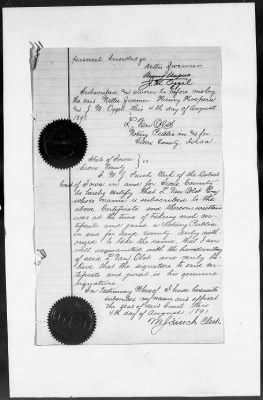 personal knowledge.
Nellie Zwemer
Henry Hospers
J. W. Oggel
Subscribed and sworn to before me by
the said Nellie Zwemer Henry Hospers
and J. W. Oggel this 4th day of August
1891.
L. Van Olst
Notary Public in and for
Sioux County, Iowa.
State of Iowa
Sioux County } ss
I, M. J. Finch Clerk of the District
Court of Iowa in and for Sioux County
do hereby certify that L Van Olst Esq
whose name is subscribed to the
above Certificate and thereon written
was at the time of taking said cer-
tificate and jurat a Notary Public
in and for said County duly auth-
orized to take the same, that I am
well acquainted with the handwriting
of said L Van Olst and verily be-
lieve that the signature to said cer-
tificate and jurat is his genuine
signature.
In Testimony Whereof I have hereunto
subscribed my name and affixed
the seal of said Court this
4th day of August 1891
M J Finch Clerk